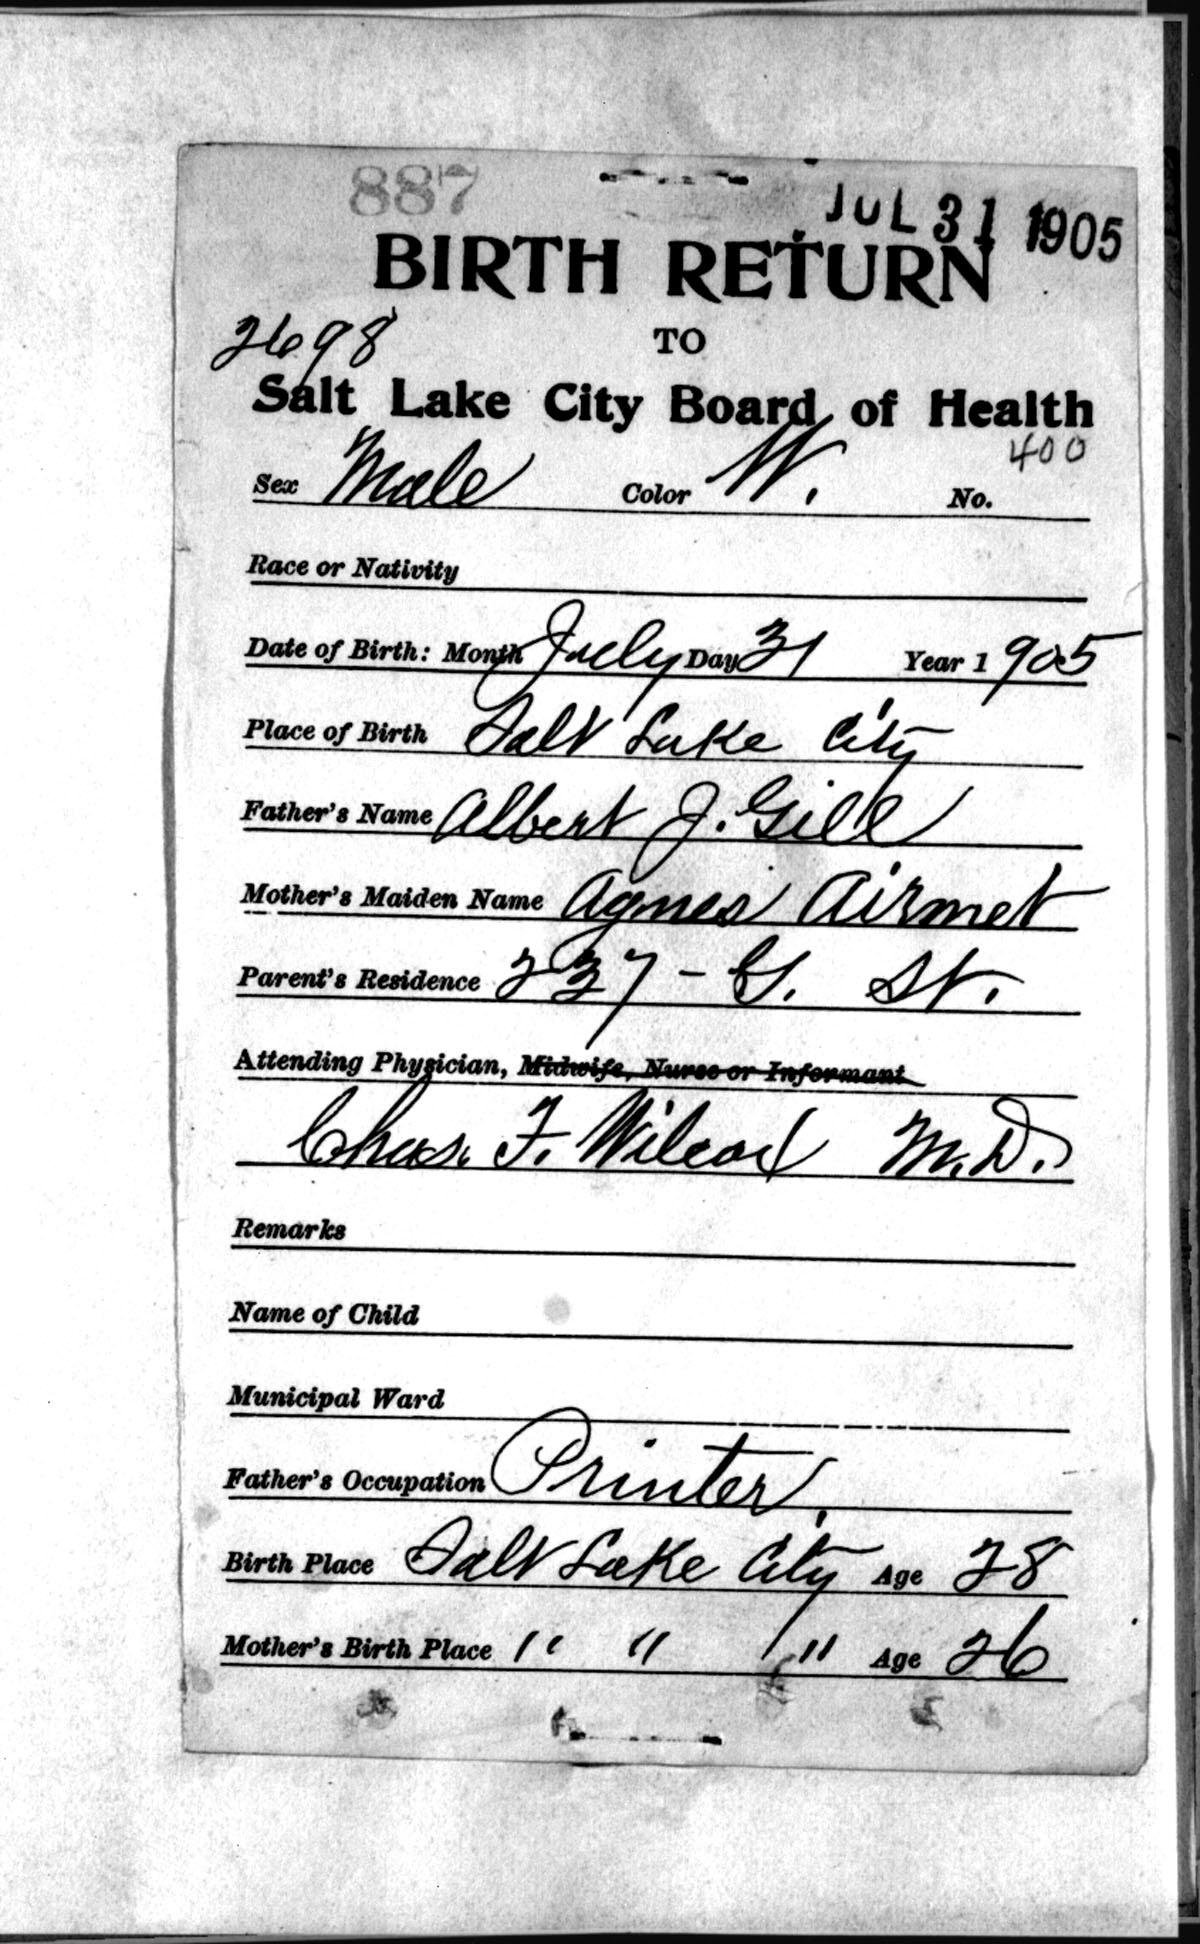 887
JUL 31 1905
BIRTH RETURN
TO
2698
Salt Lake City Board of Health
400
Sex Male Color W. No.
Race or Nativity
Date of Birth: Month July Day 31 Year 1905
Place of Birth Salt Lake City
Father's Name Albert J. Gill
Mother's Maiden Name Agnes Airmet
Parent's Residence 237 - G. St.
Attending Physician, Midwife, Nurse or Informant
Chas. F. Wilcox M.D.
Remarks
Name of Child
Municipal Ward
Father's Occupation Printer,
Birth Place Salt Lake City Age 28
Mother's Birth Place " " " Age 26